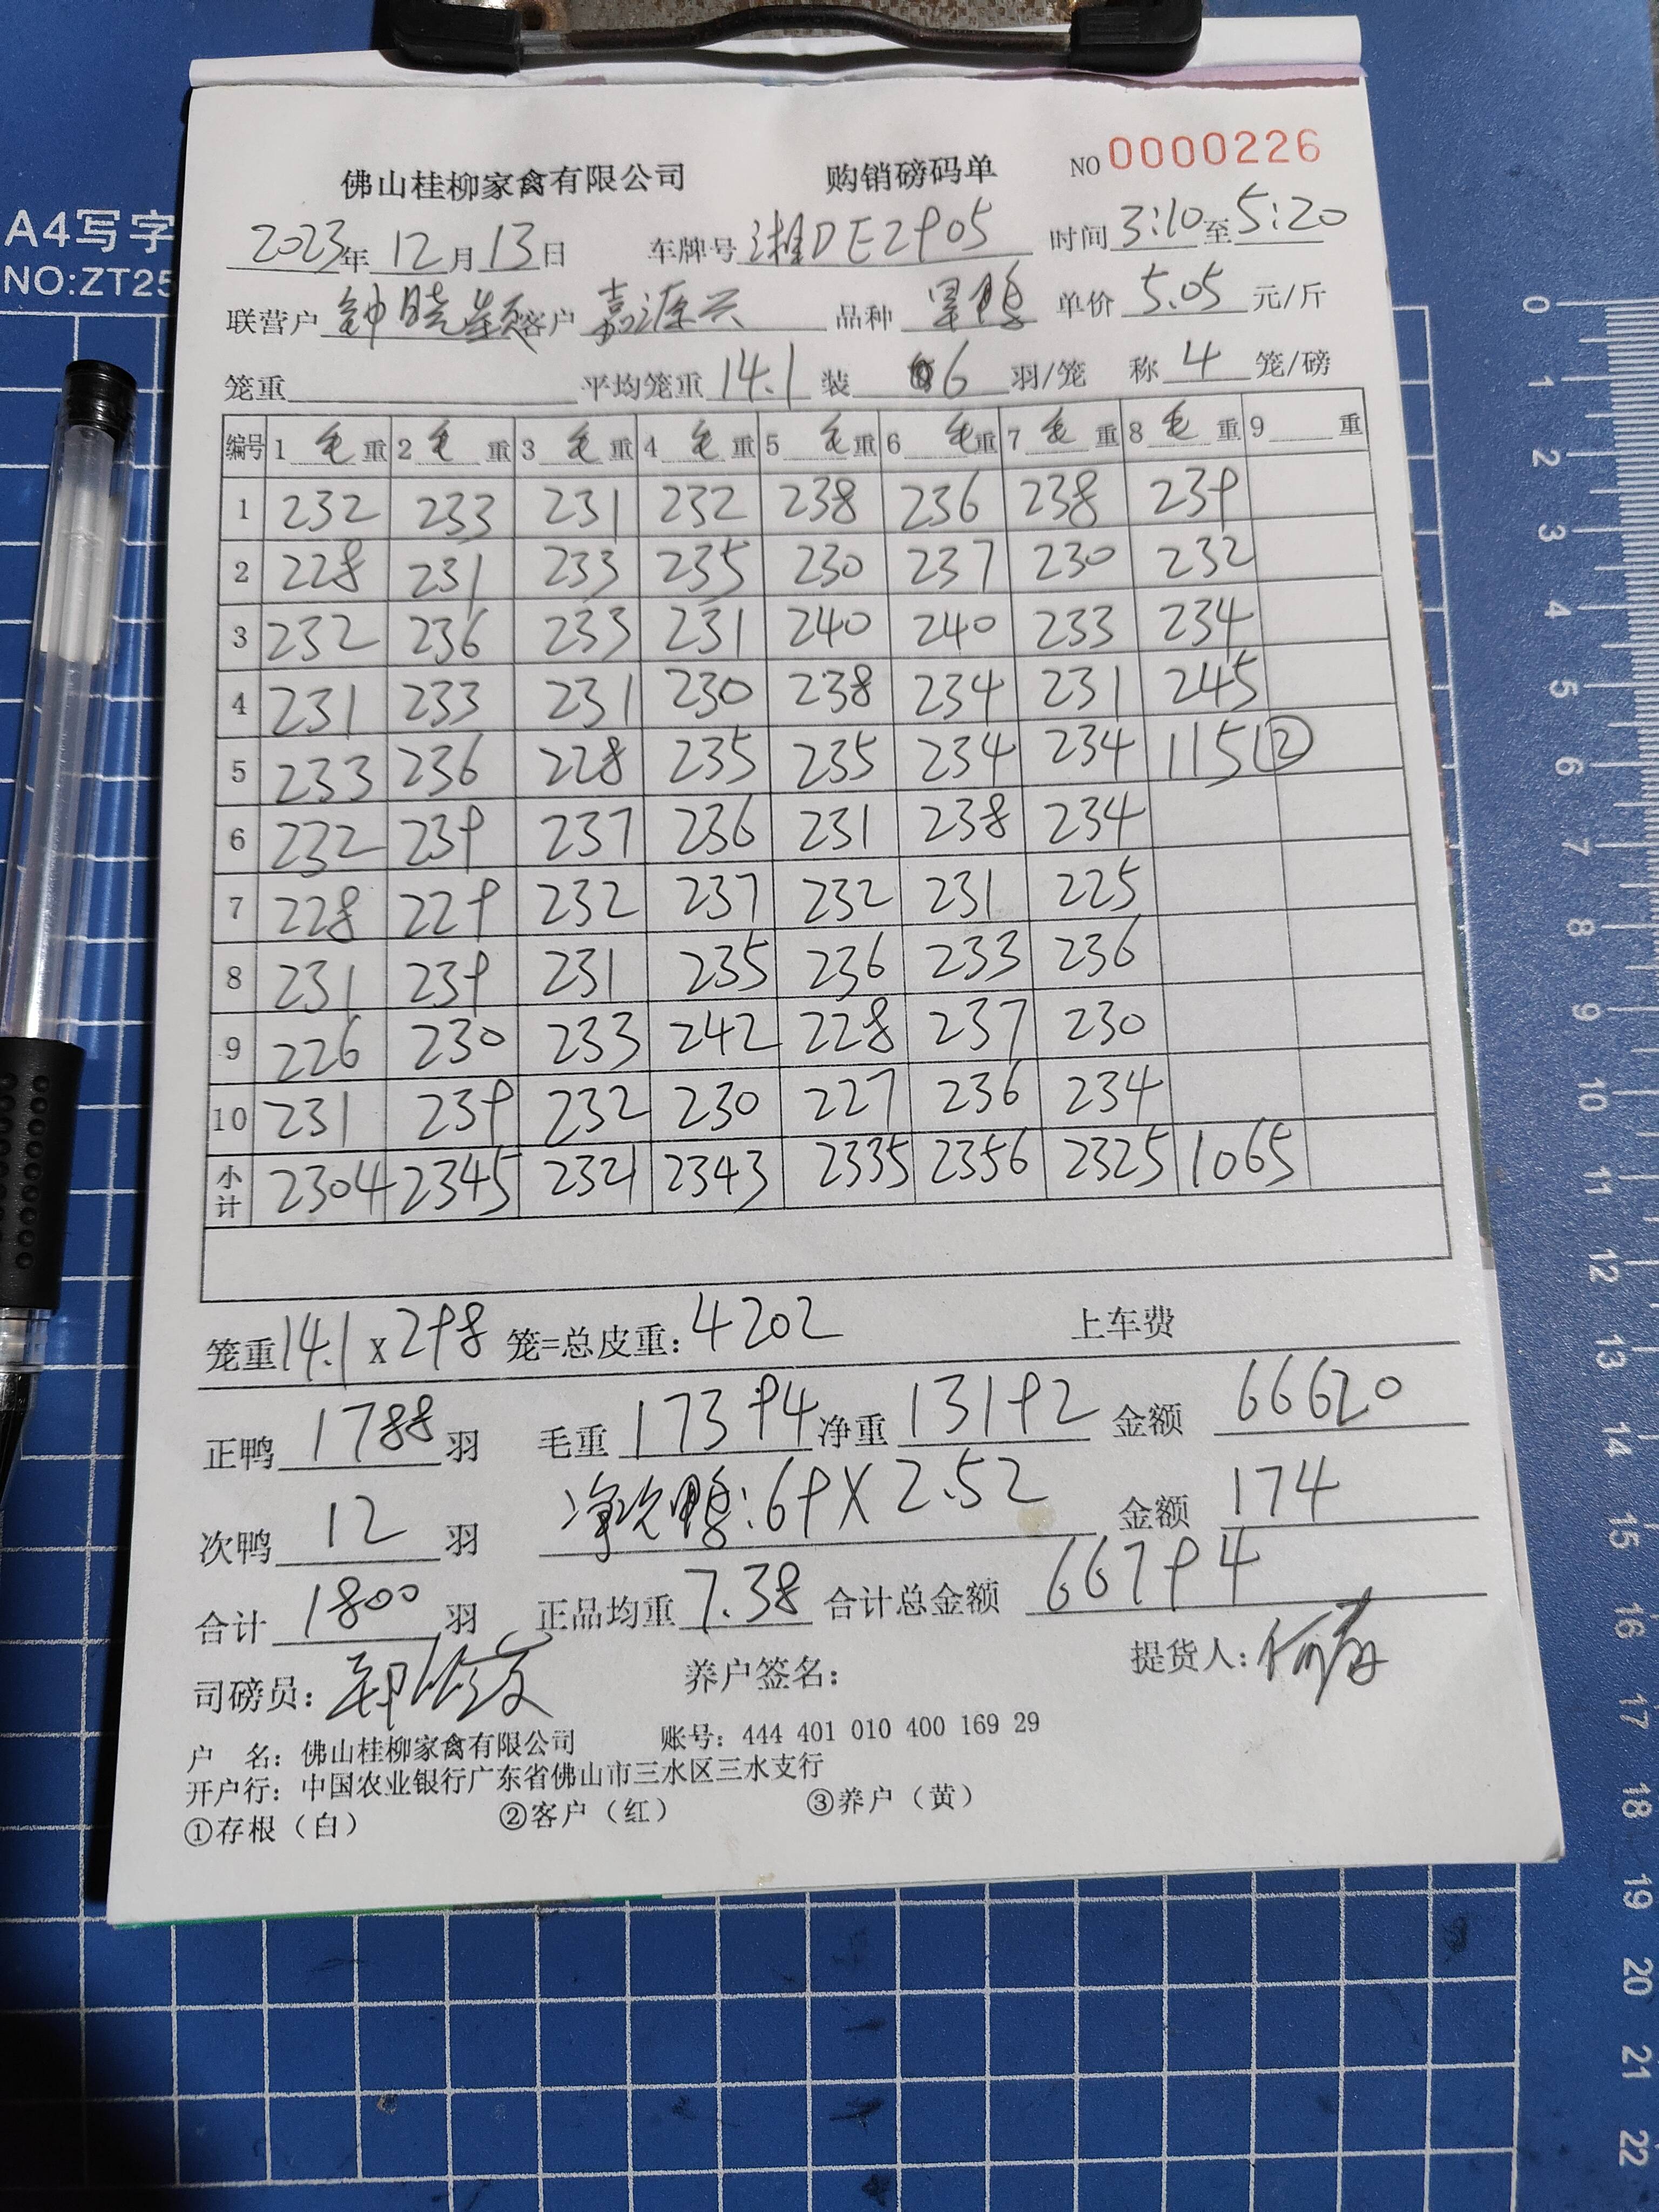 A4写字
NO:ZT25
佛山桂柳家禽有限公司 购销磅码单 NO 0000226
2023年12月13日 车牌号 湘DE2905 时间 3:10至5:20
联营户 钟晓 客户 嘉源兴 品种 鸭 单价 5.05 元/斤
笼重 平均笼重 14.1 装 6 羽/笼 称 4 笼/磅
编号 1 毛重 2 毛重 3 毛重 4 毛重 5 毛重 6 毛重 7 毛重 8 毛重 9 重
1 232 233 231 232 238 236 238 239
2 228 231 233 235 230 237 230 232
3 232 236 233 231 240 240 233 234
4 231 233 231 230 238 234 231 245
5 233 236 228 235 235 234 234 115②
6 232 239 237 236 231 238 234
7 228 229 232 237 232 231 225
8 231 239 231 235 236 233 236
9 226 230 233 242 228 237 230
10 231 239 232 230 227 236 234
小计 2304 2345 2321 2343 2335 2356 2325 1065
笼重 14.1 x 298 笼=总皮重: 4202 上车费
正鸭 1788 羽 毛重 17394 净重 13192 金额 66620
次鸭 12 羽 净次鸭:69X2.52 金额 174
合计 1800 羽 正品均重 7.38 合计总金额 66794
司磅员: 养户签名: 提货人:
户 名: 佛山桂柳家禽有限公司 账号: 444 401 010 400 169 29
开户行: 中国农业银行广东省佛山市三水区三水支行
①存根（白） ②客户（红） ③养户（黄）
0
1
2
3
4
5
6
7
8
9
10
11
12
13
14
15
16
17
18
19
20
21
22